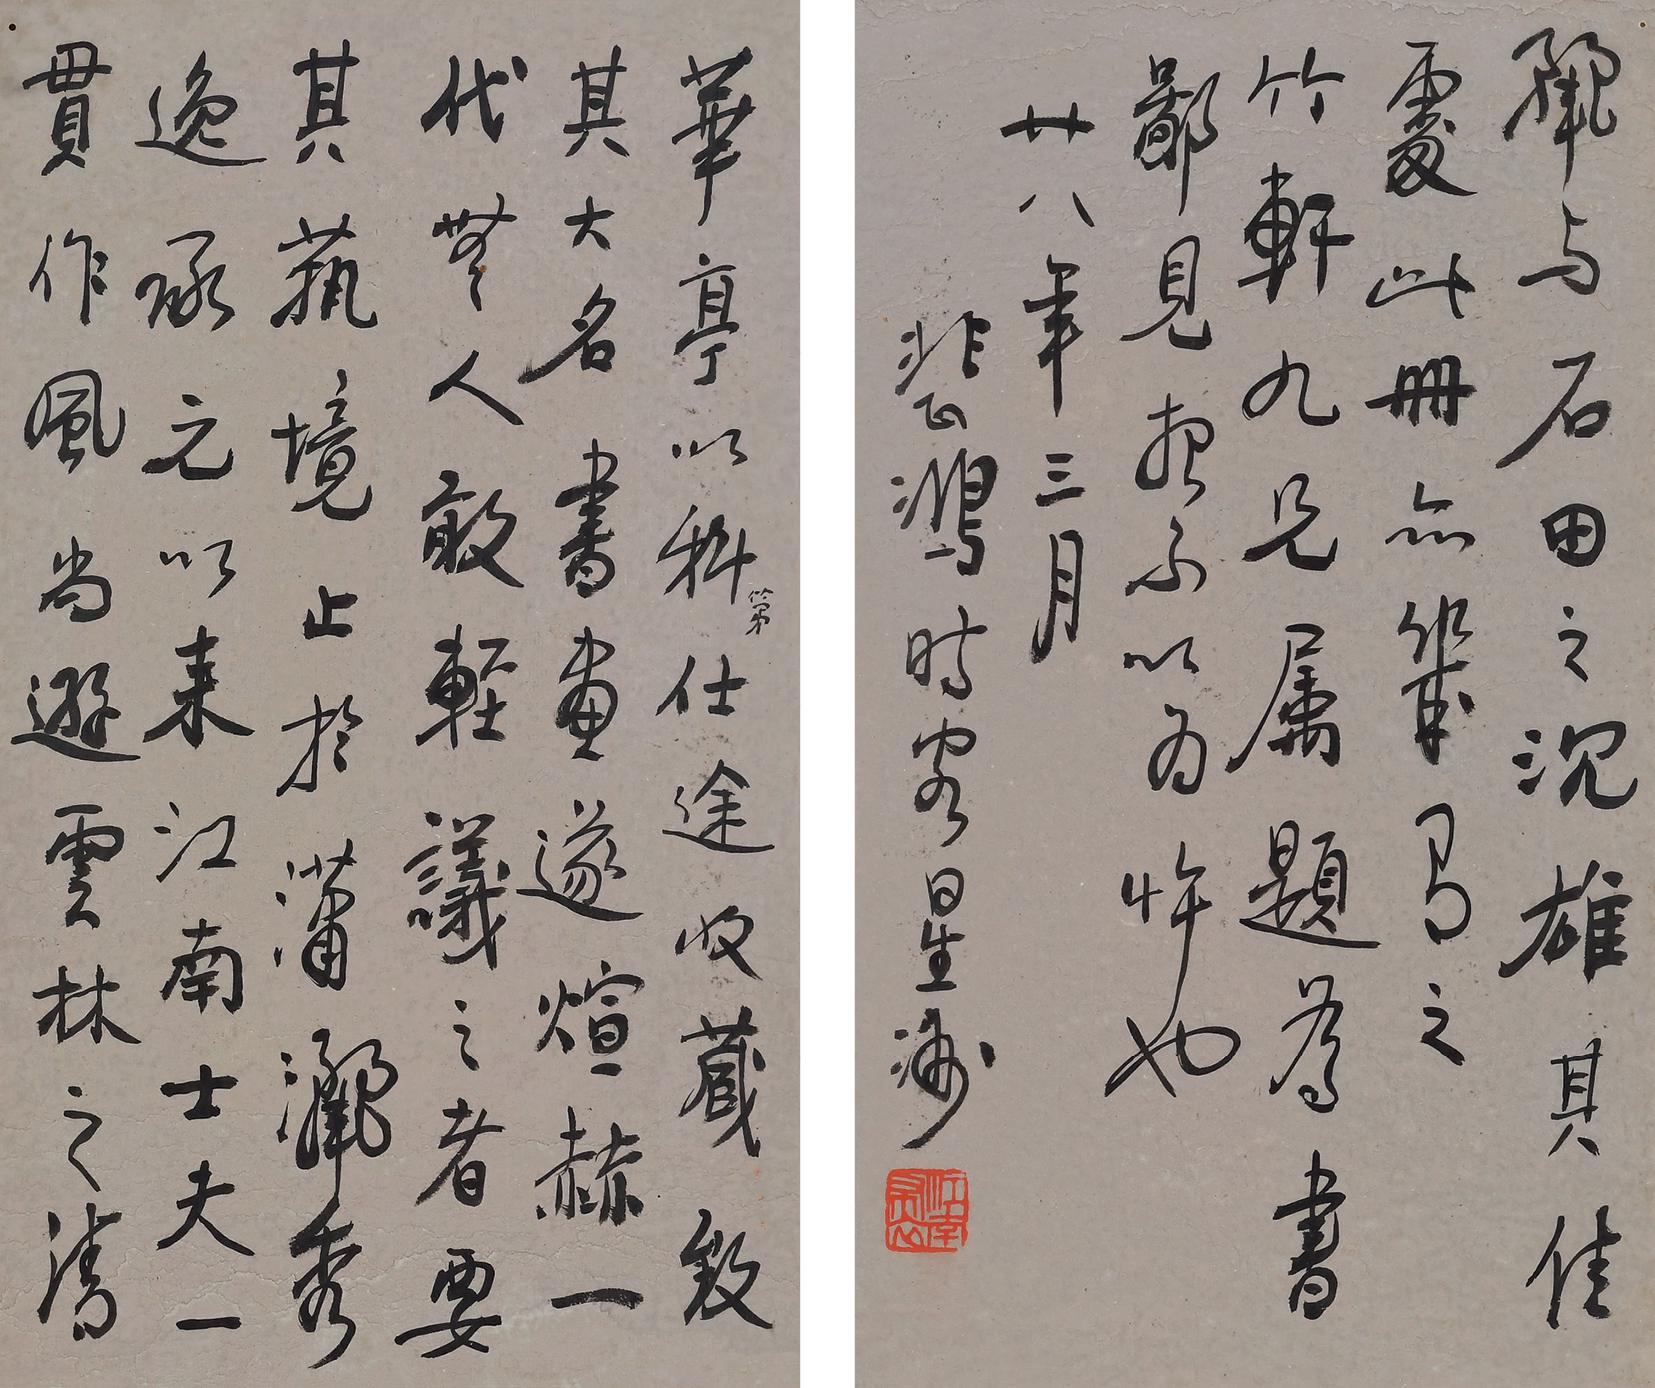 華亭以科第仕途收藏致
其大名書畫遂煊赫一
代無人敢輕議之者要
其蓺境止於瀟灑秀
逸承元以来江南士夫一
貫作風尚遜雲林之清
麗与石田之沉雄其佳
處此冊亦之
竹軒九兄属題為書
鄙見想不以為忤也
廿八年三月
悲鴻時客星洲
江南布衣